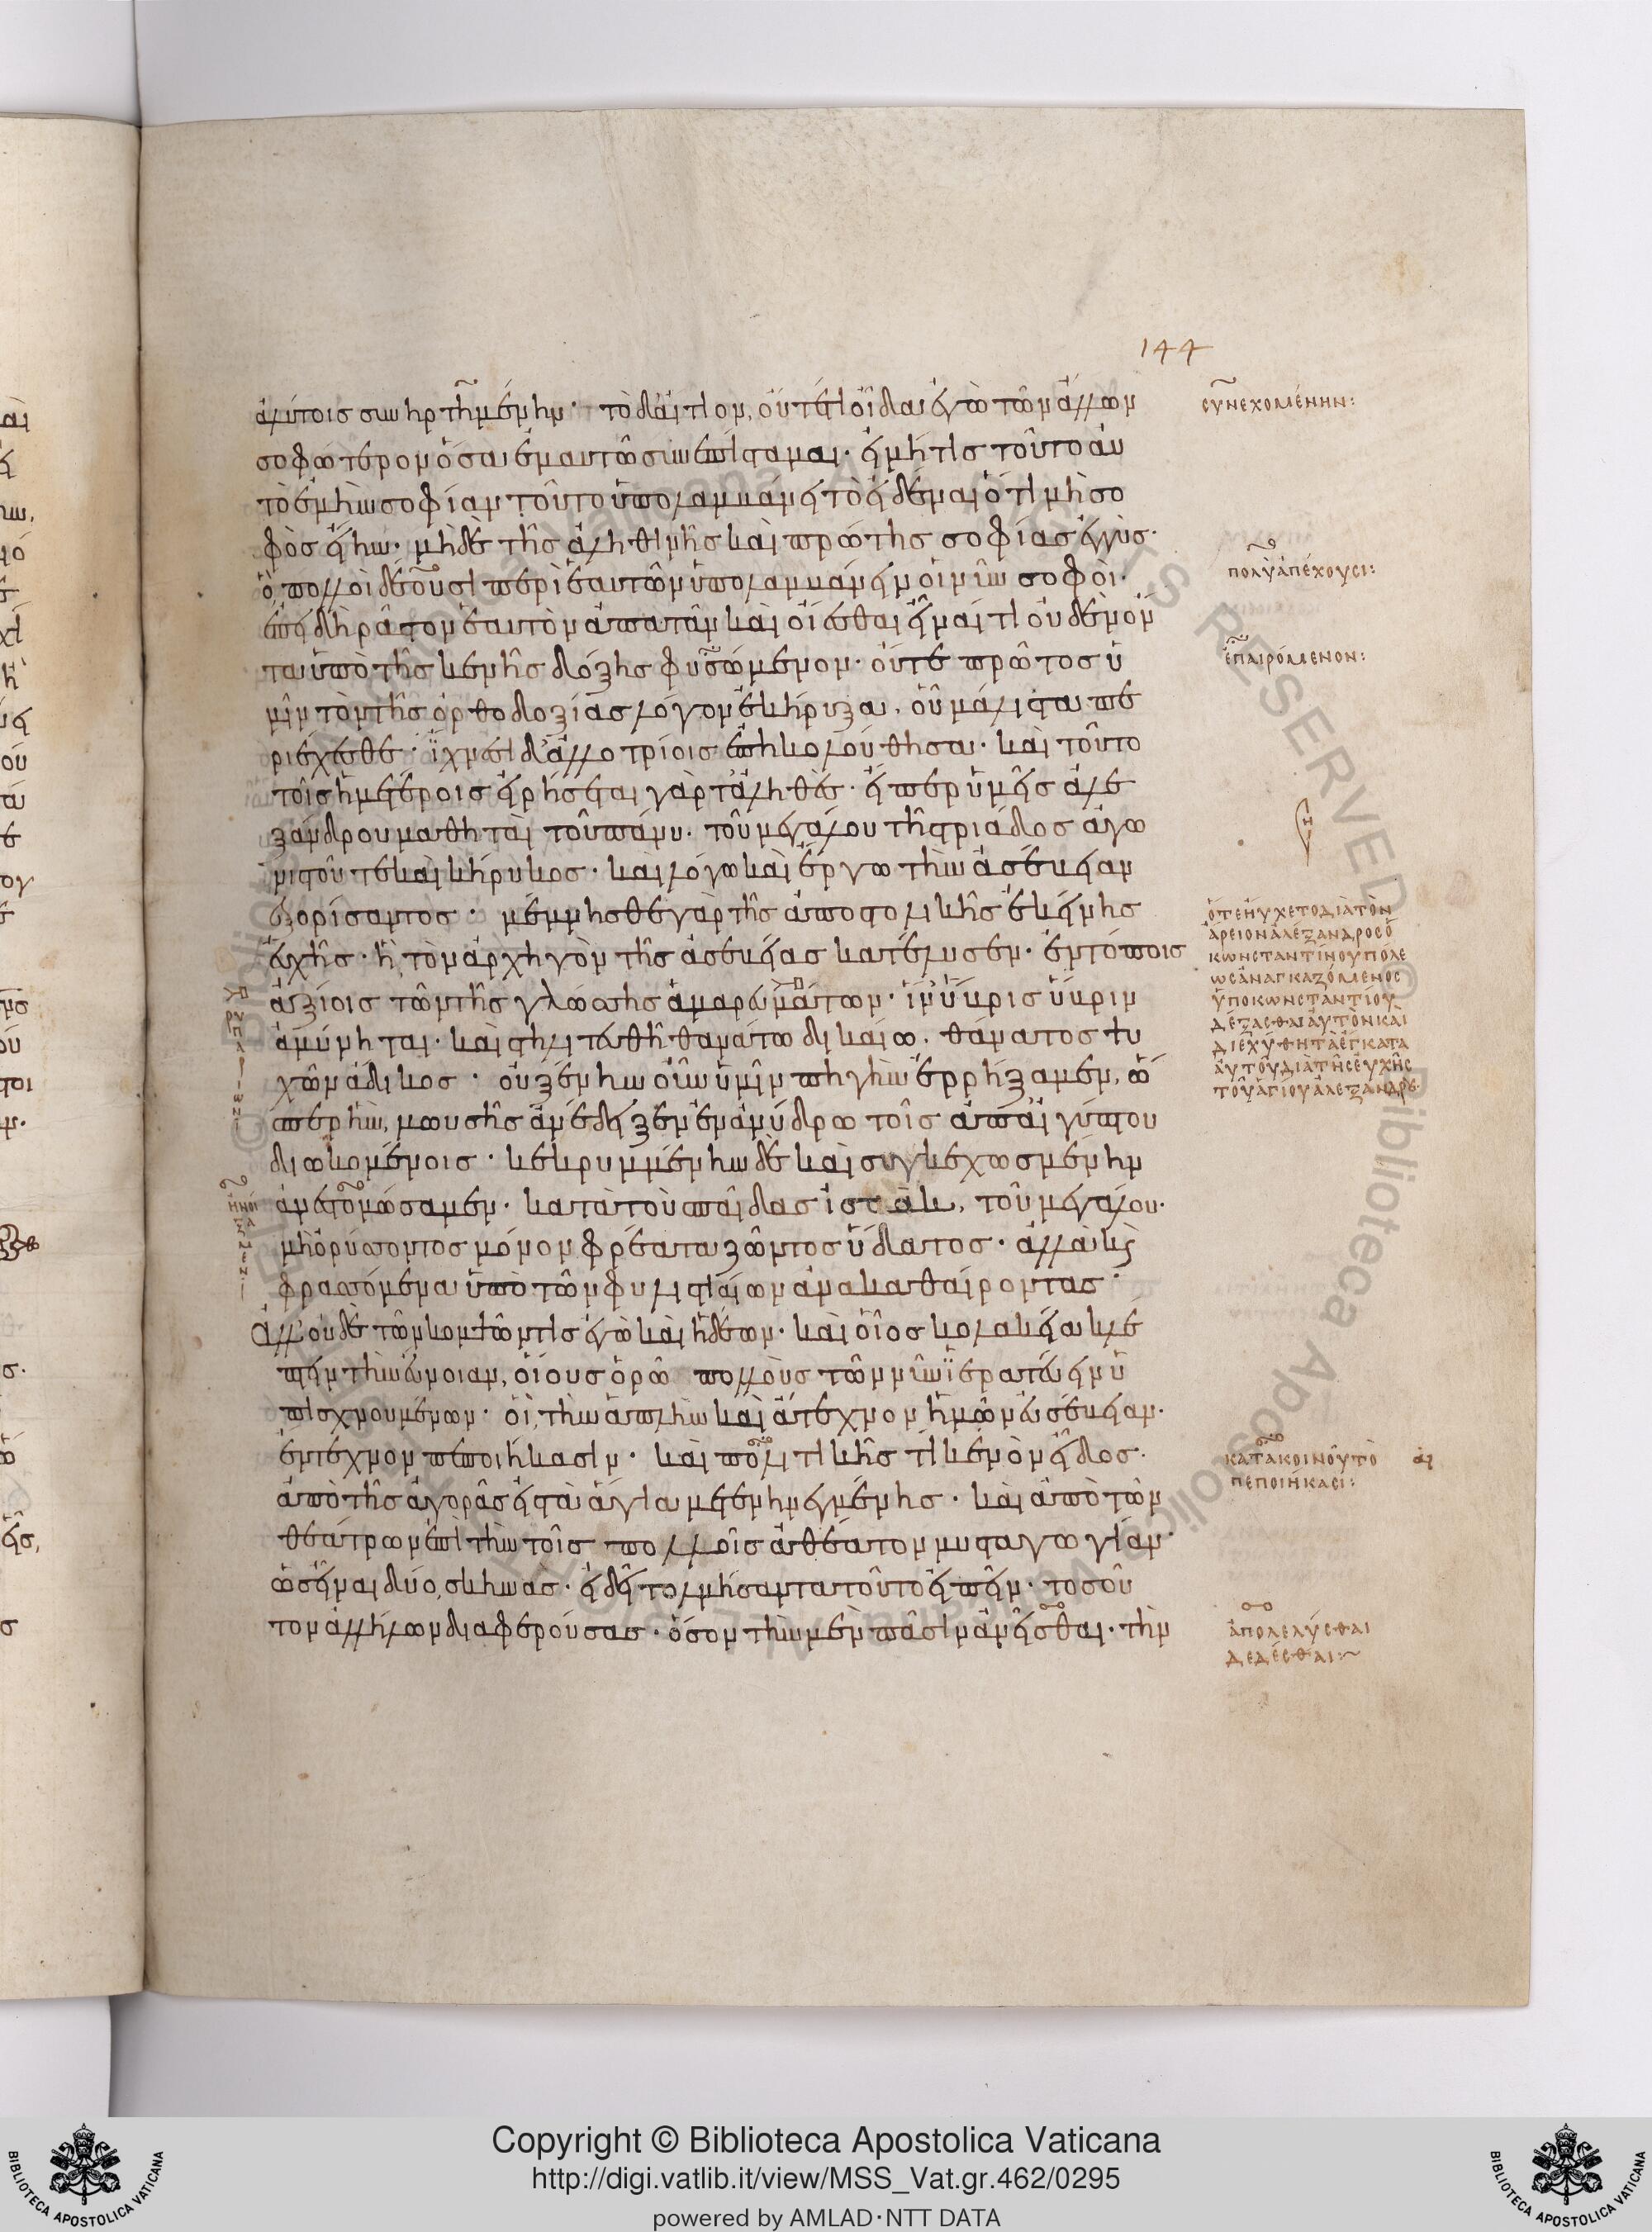 144
ἀλύτοις συνηρτημένην· τὸ δ' αἴτιον, οὔτέ τι οἶδα ἐγὼ τῶν ἄλλων
σοφώτερον ὅσα ἐμαυτῶ συνεπίσταμαι· εἰ μή τις τοῦτο αὐ
τὸ ἐμὴν σοφίαν τοῦτο ὑπολαμβάνει τὸ εἰδέναι ὅτι μὴ σο
φὸς εἴην· μὴδὲ τῆς ἀληθινῆς καὶ πρώτης σοφίας ἐγγὺς·
ὃ πολλοῦ δέουσι περὶ ἑαυτῶν ὑπολαμβάνειν οἱ νῦν σοφοὶ·
ἐπεὶ δὴ ρᾶστον ἑαυτὸν ἀπατᾶν καὶ οἴεσθαι εἶναί τι οὐδὲν ὄν
τα ὑπὸ τῆς κενῆς δόξης φυσώμενον· οὔτε πρῶτος ὑ
μῖν τὸν τῆς ὀρθοδοξίας λόγον ἐκήρυξα, οὗ μάλιστα πε
ριέχεσθε· ἴχνεσι δ' ἀλλοτρίοις ἐπηκολούθησα· καὶ τοῦτο
τοῖς ἡμετέροις εἰρήσεται γὰρ τἀληθές· εἴπερ ὑμεῖς ἀλε
ξάνδρου μαθηταὶ τοῦ πάνυ· τοῦ μεγάλου τῆς τριάδος ἀγω
νιστοῦ τε καὶ κήρυκος· καὶ λόγω καὶ ἔργω τὴν ἀσέβειαν
ἐξορίσαντος· μέμνησθε γὰρ τῆς ἀποστολικῆς ἐκείνης
εὐχῆς· ἣ τὸν ἀρχηγὸν τῆς ἀσεβείας κατέλυσεν· ἐν τόποις
ἀξίοις τῶν τῆς γλώσσης ἀμαρυγμάτων· ἵν' ὕβρις ὕβριν
ἀμύνηται· καὶ στηλιτευθῆ θανάτω δικαίω· θάνατος ψυ
χῶν ἄδικος· οὐ ξένην οὖν ὑμῖν πηγὴν ἐρρήξαμεν, ὥ
σπερ ἣν, μωυσῆς ἀνέδειξεν ἐν ἀνύδρω τοῖς ἀπ' αἰγύπτου
διωκομένοις· κεκρυμμένην δὲ καὶ συγκεχωσμένην
ἀνεστομώσαμεν· κατὰ τοὺς παῖδας ἰσαὰκ, τοῦ μεγάλου·
μὴ ὀρύσσοντος μόνον φρέατα ζῶντος ὕδατος· ἀλλὰ καὶ
φρασσόμενα ὑπὸ τῶν φυλιστιαίων ἀνακαθαίροντας·
Ἀλλ' οὐδὲ τῶν κομψῶν τις ἐγὼ καὶ ἡδέων· καὶ οἷος κολακεία κλέ
πτειν τὴν εὔνοιαν, οἵους ὁρῶ πολλοὺς τῶν νῦν ἱερατεύειν ὑ
πισχνουμένων· οἳ, τὴν ἁπλῆν καὶ ἄτεχνον ἡμῶν εὐσέβειαν·
ἔντεχνον πεποιήκασιν· καὶ πολιτικῆς τι κενὸν εἶδος·
ἀπὸ τῆς ἀγορᾶς εἰς τὰ ἅγια μετενηνεγμένης· καὶ ἀπὸ τῶν
θεάτρων ἐπὶ τὴν τοῖς πολλοῖς ἀθέατον μυσταγωγίαν·
ὡς εἶναι δύο, σκηνὰς· εἰ δεῖ τολμήσαντα τοῦτο εἰπεῖν· τοσοῦ
τον ἀλλήλων διαφερούσας· ὅσον τὴν μὲν πᾶσιν ἀνεῖσθαι· τὴν
συνεχομένην:
πολὺ ἀπέχουσι:
ἐπαιρόμενον:
ὅτε ηὔχετο διὰ τὸν
ἄρειον ἀλέξανδρος ὁ
κωνσταντινουπόλε
ως ἀναγκαζόμενος
ὑπὸ κωνσταντίου
δέξασθαι αὐτὸν καὶ
διεχύθη τὰ ἔγκατα
αὐτοῦ διὰ τῆς εὐχῆς
τοῦ ἁγίου ἀλεξάνδρου·
κατὰ κοινοῦ τὸ
πεποιήκασι:
ἀπολελύσθαι
δεδέσθαι:
Copyright © Biblioteca Apostolica Vaticana
http://digi.vatlib.it/view/MSS_Vat.gr.462/0295
powered by AMLAD·NTT DATA
BIBLIOTECA APOSTOLICA VATICANA
BIBLIOTECA APOSTOLICA VATICANA